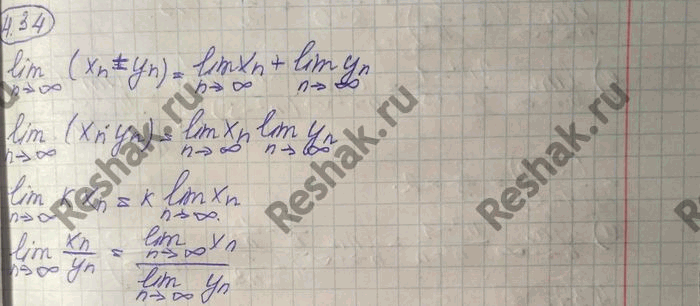 4.34
lim n→∞ (xₙ ± yₙ) = lim n→∞ xₙ + lim n→∞ yₙ
lim n→∞ (xₙ · yₙ) = lim n→∞ xₙ lim n→∞ yₙ
lim n→∞ k xₙ = k lim n→∞ xₙ
lim n→∞ xₙ/yₙ = lim n→∞ xₙ / lim n→∞ yₙ
Reshak.ru
Reshak.ru
Reshak.ru
Reshak.ru